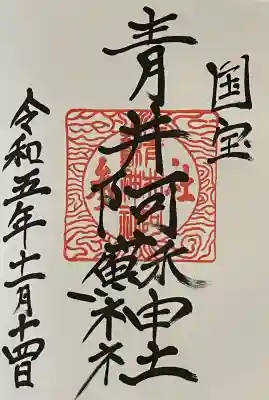 国宝
青井阿蘇神社
令和五年十一月十四日